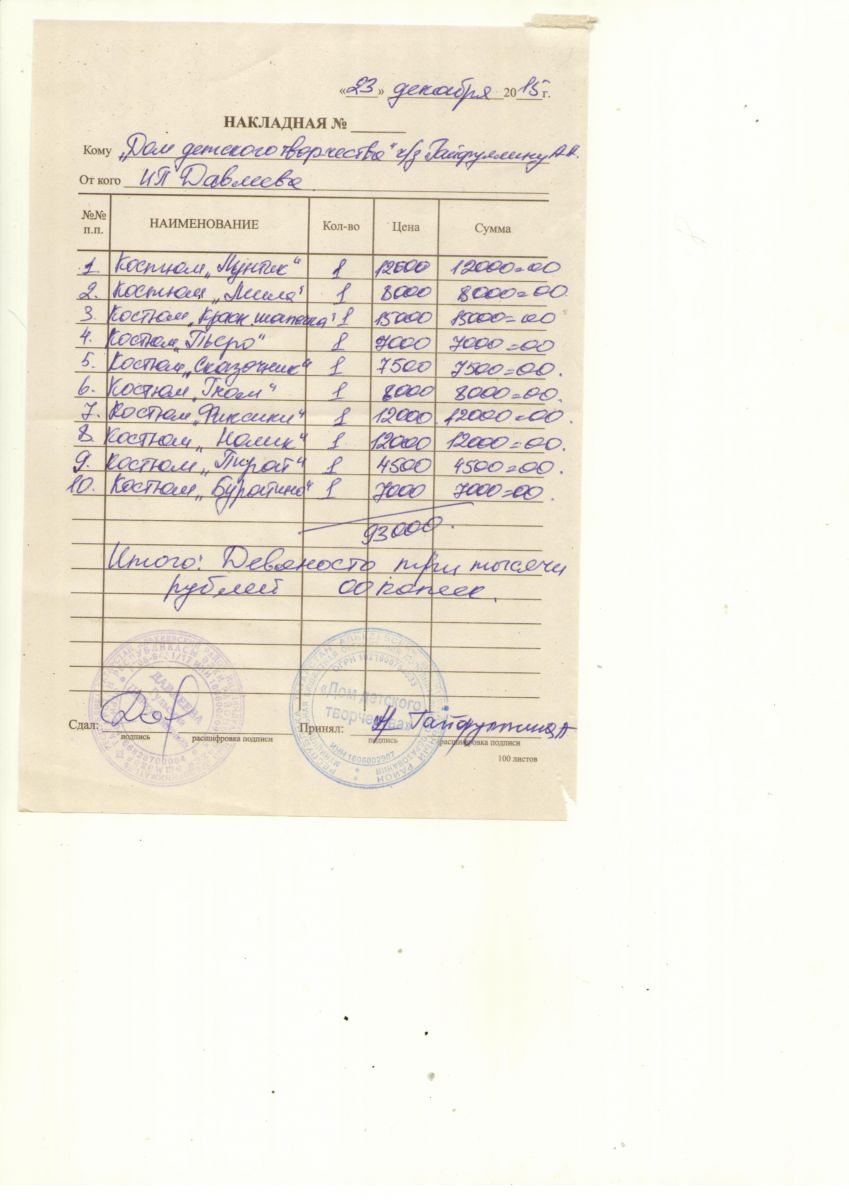 «23» декабря 2015 г.
НАКЛАДНАЯ № ______
Кому „Дом детского творчества" ч/з Гайфуллину А.А.
От кого ИП Давлеева
№№ п.п. НАИМЕНОВАНИЕ Кол-во Цена Сумма
1. Костюм „Лунтик" 1 12000 12000=00
2. Костюм „Мила" 1 8000 8000=00.
3. Костюм „Красн. шапочка" 1 15000 15000=00
4. Костюм „Пьеро" 1 7000 7000=00
5. Костюм „Сказочник" 1 7500 7500=00.
6. Костюм „Гном" 1 8000 8000=00.
7. Костюм „Фиксики" 1 12000 12000=00.
8. Костюм „Нолик" 1 12000 12000=00.
9. Костюм „Пират" 1 4500 4500=00.
10. Костюм „Буратино" 1 7000 7000=00.
93000.
Итого: Девяносто три тысячи
рублей 00 копеек.
«Дом детского
творчества»
Сдал: Принял: Гайфуллина А
подпись расшифровка подписи подпись расшифровка подписи
100 листов